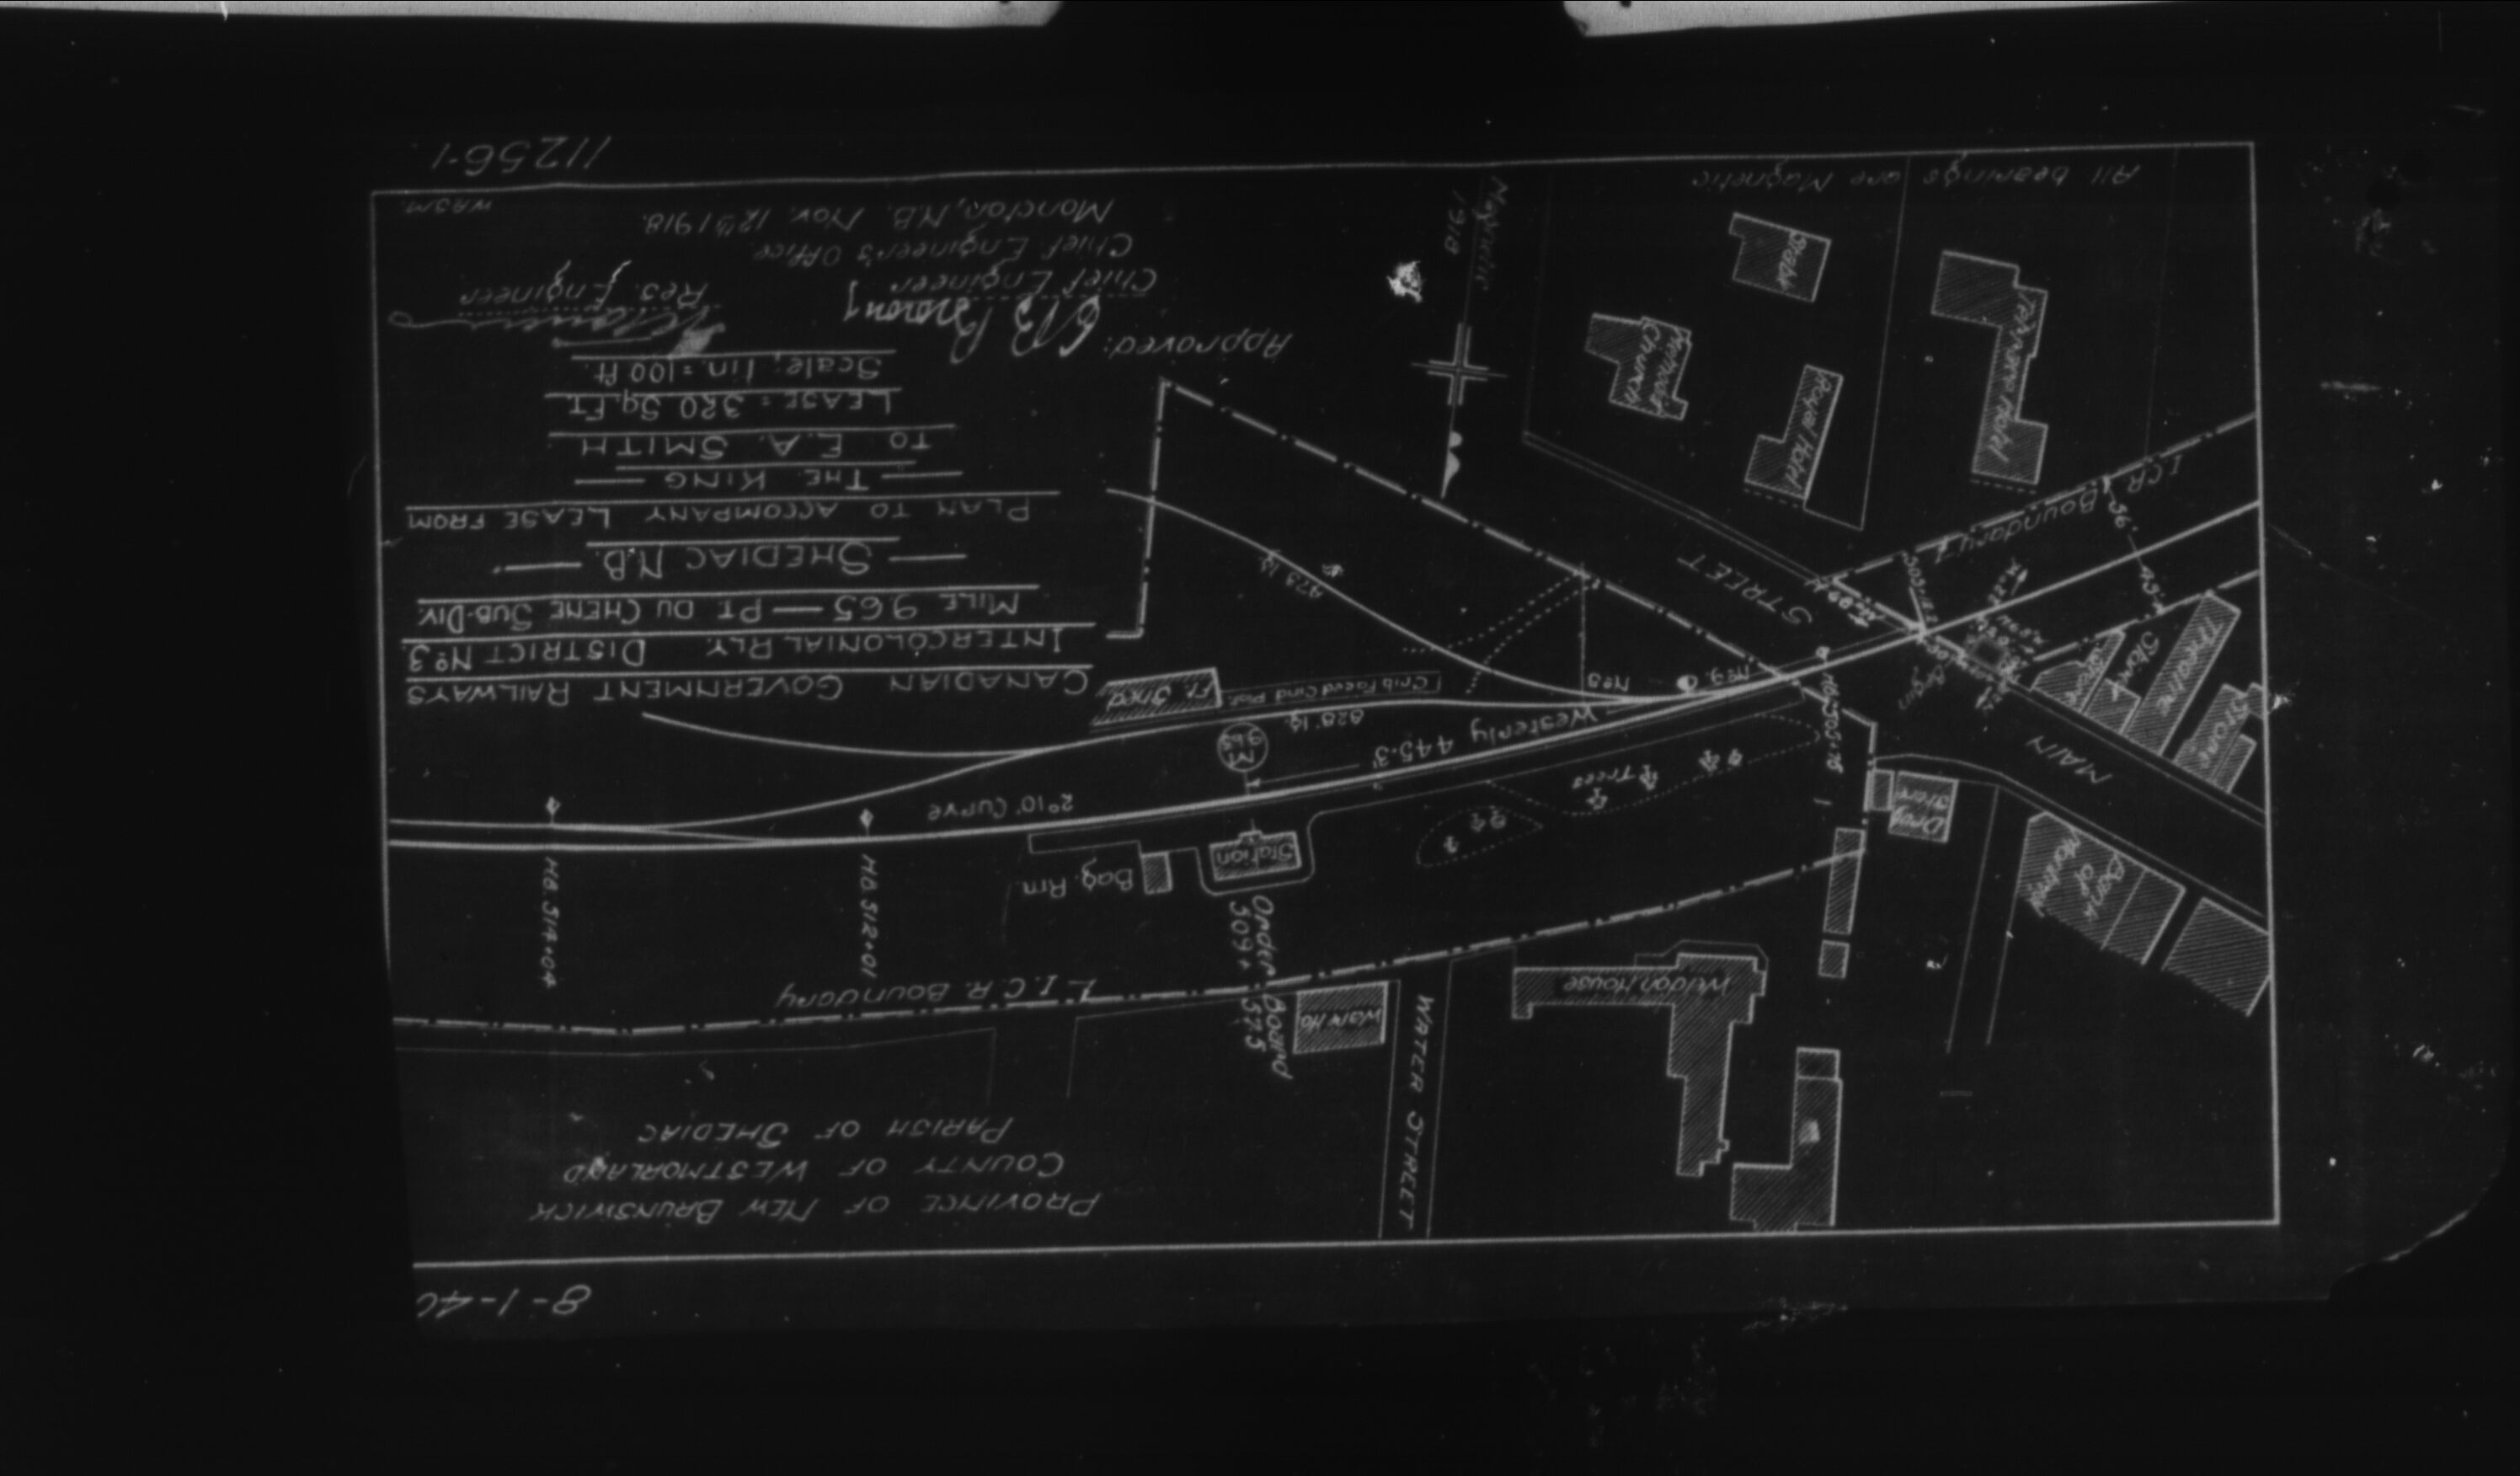 8-1-40
PROVINCE OF NEW BRUNSWICK
COUNTY OF WESTMORLAND
PARISH OF SHEDIAC
WATER STREET
Weldon House
Ware Ho
Order Board
509+57.5
I.C.R. Boundary
HB 512+01
HB 514+04
Bank
of
Montreal
Drug
Store
MAIN
STREET
Store
Theatre
Store
Store
Station
Bag. Rm.
Trees
2°10' Curve
Westerly 445.3'
M
9.65
828' lg.
Crib Faced Cind Plat.
Ft. Shed
Nº 9
Nº 3
HB 505+78
Begin
36'
I.C.R.
Boundary
473 lg.
CANADIAN GOVERNMENT RAILWAYS
INTERCOLONIAL RLY. DISTRICT Nº 3.
MILE 9.65 — PT. DU CHENE SUB-DIV.
— SHEDIAC N.B. —
PLAN TO ACCOMPANY LEASE FROM
— THE KING —
TO E.A. SMITH
LEASE = 320 Sq. FT.
Scale; 1 in. = 100 ft.
Res. Engineer
Approved:
Chief Engineer
Chief Engineer's Office
Moncton, N.B. Nov. 12th 1918.
Royal Hotel
Methodist
Church
Stable
Hotel
Magnetic
1918
All bearings are Magnetic
11256-1